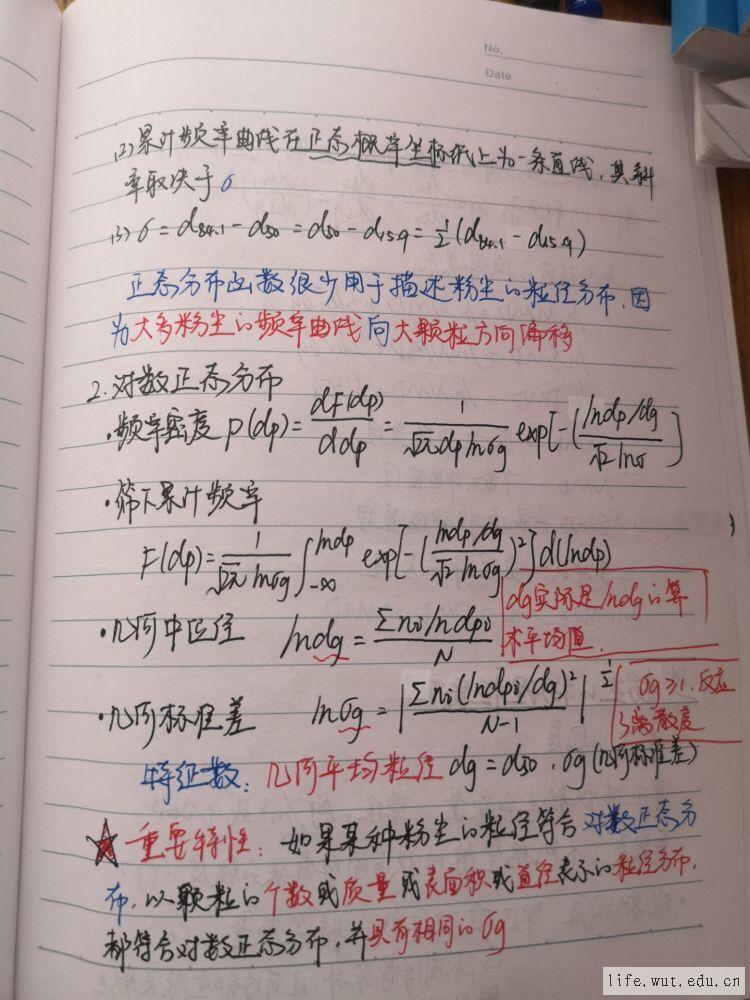 No.
Date
(2) 累计频率曲线在正态概率坐标纸上为一条直线，其斜
率取决于σ
(3) σ = d84.1 - d50 = d50 - d15.9 = 1/2 (d84.1 - d15.9)
正态分布函数很少用于描述粉尘的粒径分布，因
为大多粉尘的频率曲线向大颗粒方向偏移
2. 对数正态分布
·频率密度 p(dp) = dF(dp)/ddp = 1/(√2π dp lnσg) exp[-(lndp/dg / √2 lnσ)]
·筛下累计频率
F(dp) = 1/(√2π lnσg) ∫_{-∞}^{lndp} exp[-(lndp/dg / √2 lnσg)²] d(lndp)
·几何中位径 lndg = Σni lndpi / N
dg实际是lndg的算
术平均值
·几何标准差 lnσg = [Σni (lndpi/dg)² / N-1]^{1/2}
σg≥1，反应
了离散度
特征数：几何平均粒径 dg = d50，σg (几何标准差)
★ 重要特性：如果某种粉尘的粒径符合对数正态分
布，以颗粒的个数或质量或表面积或直径表示的粒径分布，
都符合对数正态分布，并具有相同的σg
life.wut.edu.cn